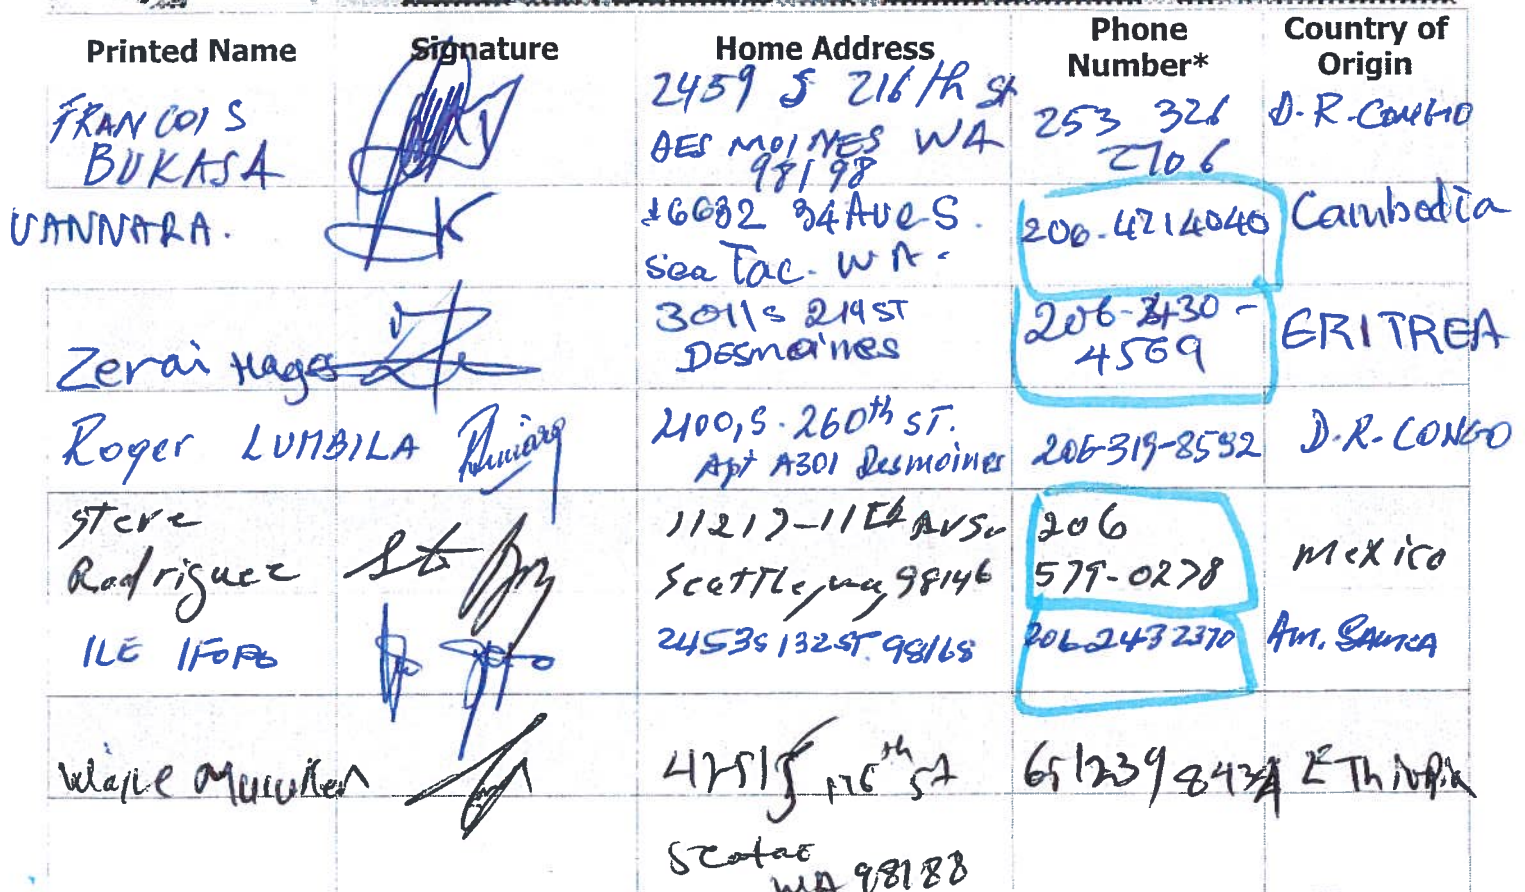 Printed Name Signature Home Address Phone Number* Country of Origin
FRANCOIS
BUKASA
2459 S 216th St
DES MOINES WA
98198
253 326
2706
D.R.CONGO
VANNARA.
16632 34 Ave S.
Sea Tac. WA.
206-4714040
Cambodia
Zerai Hagos
3011 S 219 ST
DESmoines
206-
4569
ERITREA
Roger LUMBILA
2100, S. 260th ST.
Apt A301 Desmoines
206-319-8592
D.R. CONGO
Steve
Rodriguez
11217-11th Av Sw
Seattle, wa, 98146
206
579-0278
mexico
ILE IFOPO
2453 S 132 ST. 98168
206 243 2370
Am. SAMOA
4251 S 176th St
Seatac
WA 98188
651 239 8434
EThiopia